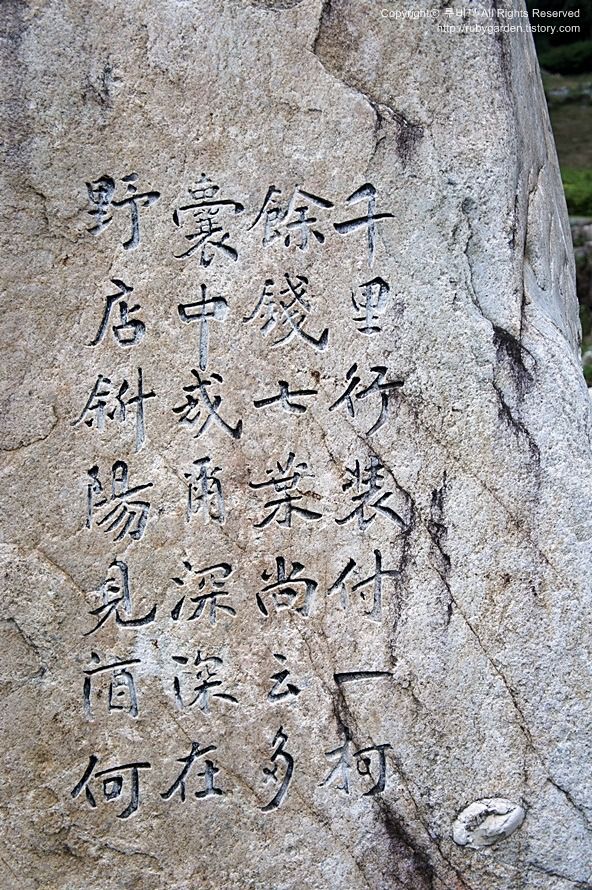 Copyright ⓒ 루비™ All Rights Reserved
http://rubygarden.tistory.com
千里行裝付一柯
餘錢七葉尚云多
囊中戒爾深深在
野店斜陽見酒何